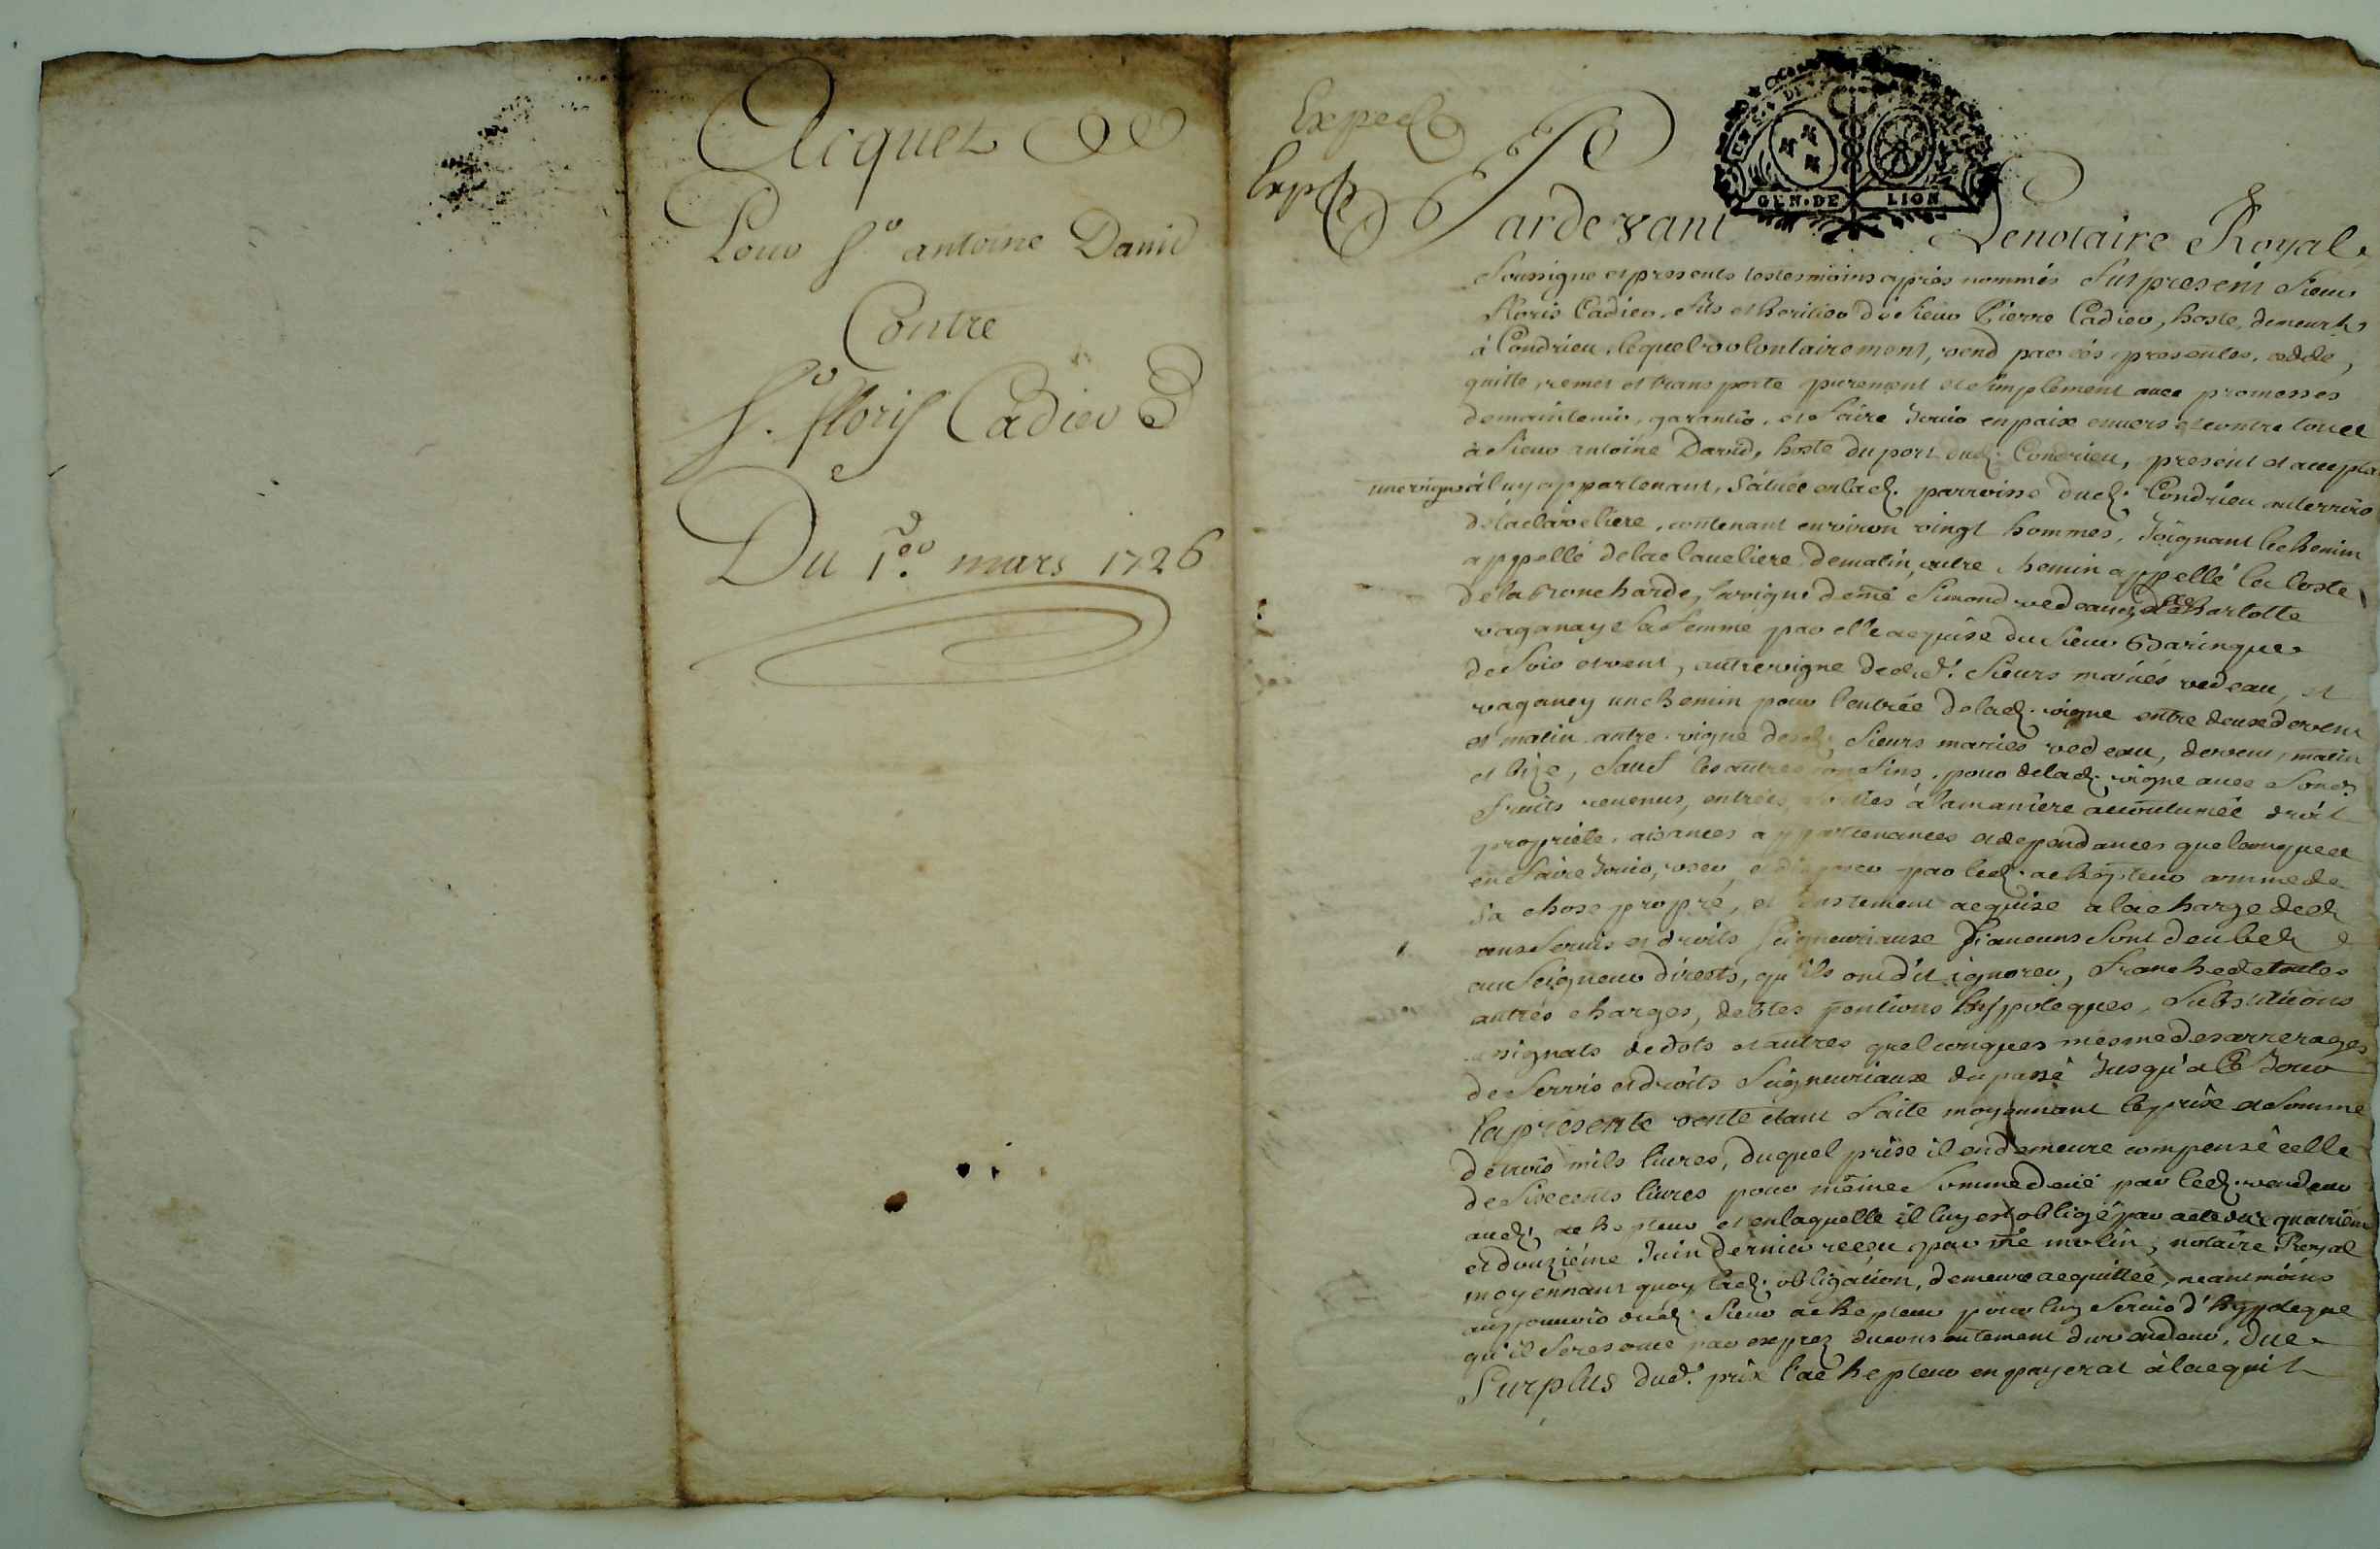 Acquet
Pour Sr. antoine David
Contre
Sr. floris Cadieu
Du 1er. mars 1726
Exped
Exp
GEN. DE LION
Pardevant Le notaire Royal
Soussigné et presents les tesmoins apprés nommés Fut present Sieur
floris Cadieu, fils et heritier du Sieur Pierre Cadieu, hoste, demeurt.
à Condrieu, lequel volontairement, vend par ces presentes, cedde,
quitte, remet et transporte purement et simplement avec promesses
de maintenir, garantir, et faire Jouir en paix envers et contre tous
à Sieur antoine David, hoste du port dud. Condrieu, present et accepta
une vigne à luy appartenant, Sâtuée en lad. parroisse dud. Condrieu au terroir
de la claveliere, contenant environ vingt hommes, Joignant le chemin
appellé de la claveliere de matin, autre chemin appellé la Coste
de la Broncharde, la vigne de me. Simond vedeau, et de dlle Charlotte
vaganay Sa femme par elle acquise du Sieur Baringue
de Soir et vent, autre vigne desd. Sieurs mariés vedeau, et
vaganey un chemin pour l'entrée de lad. vigne entre deux de vent
et matin autre vigne desd. Sieurs mariés vedeau, de vent, matin
et bize, Sauf les autres confins, pour de lad. vigne avec Sond.
fruits revenus, entrées, Sorties à la maniere accoutumée droit
proprieté, aisances appartenances et dependances quelconques
en faire Jouir, user, et disposer par led. achepteur comme de
Sa chose propre, et Justement acquise à la charge desd.
cens Servis et droits Seigneuriaux Si aucuns Sont deub
au Seigneur directs, qu'ils ont dit ignorer, franche de toutes
autres charges, debtes pentions hyppoteques, Substitutions
assignats de dots et autres quelconques mesme des arrerages
de Servis et droits Seigneuriaux du passé Jusqu'à Ce Jour
la presente vente étant faite moyennant le prix et Somme
de trois mils livres, duquel prix il en demeure compensé celle
de Six cents livres pour mêmes Somme deüe par led. vendeur
aud. achepteur et en laquelle il luy est obligé par acte du quatriéme
et douziéme Juin dernier reçeu par me. molin, notaire Royal
moyennant quoy lad. obligation, demeure acquittée, neantmoins
au pouvoir dud. Sieur achepteur pour luy Servir d'hypoteque
qu'il Se reserve par exprez du consentement du vendeur, Du
Surplus dud. prix l'achepteur en payerat à l'acquit